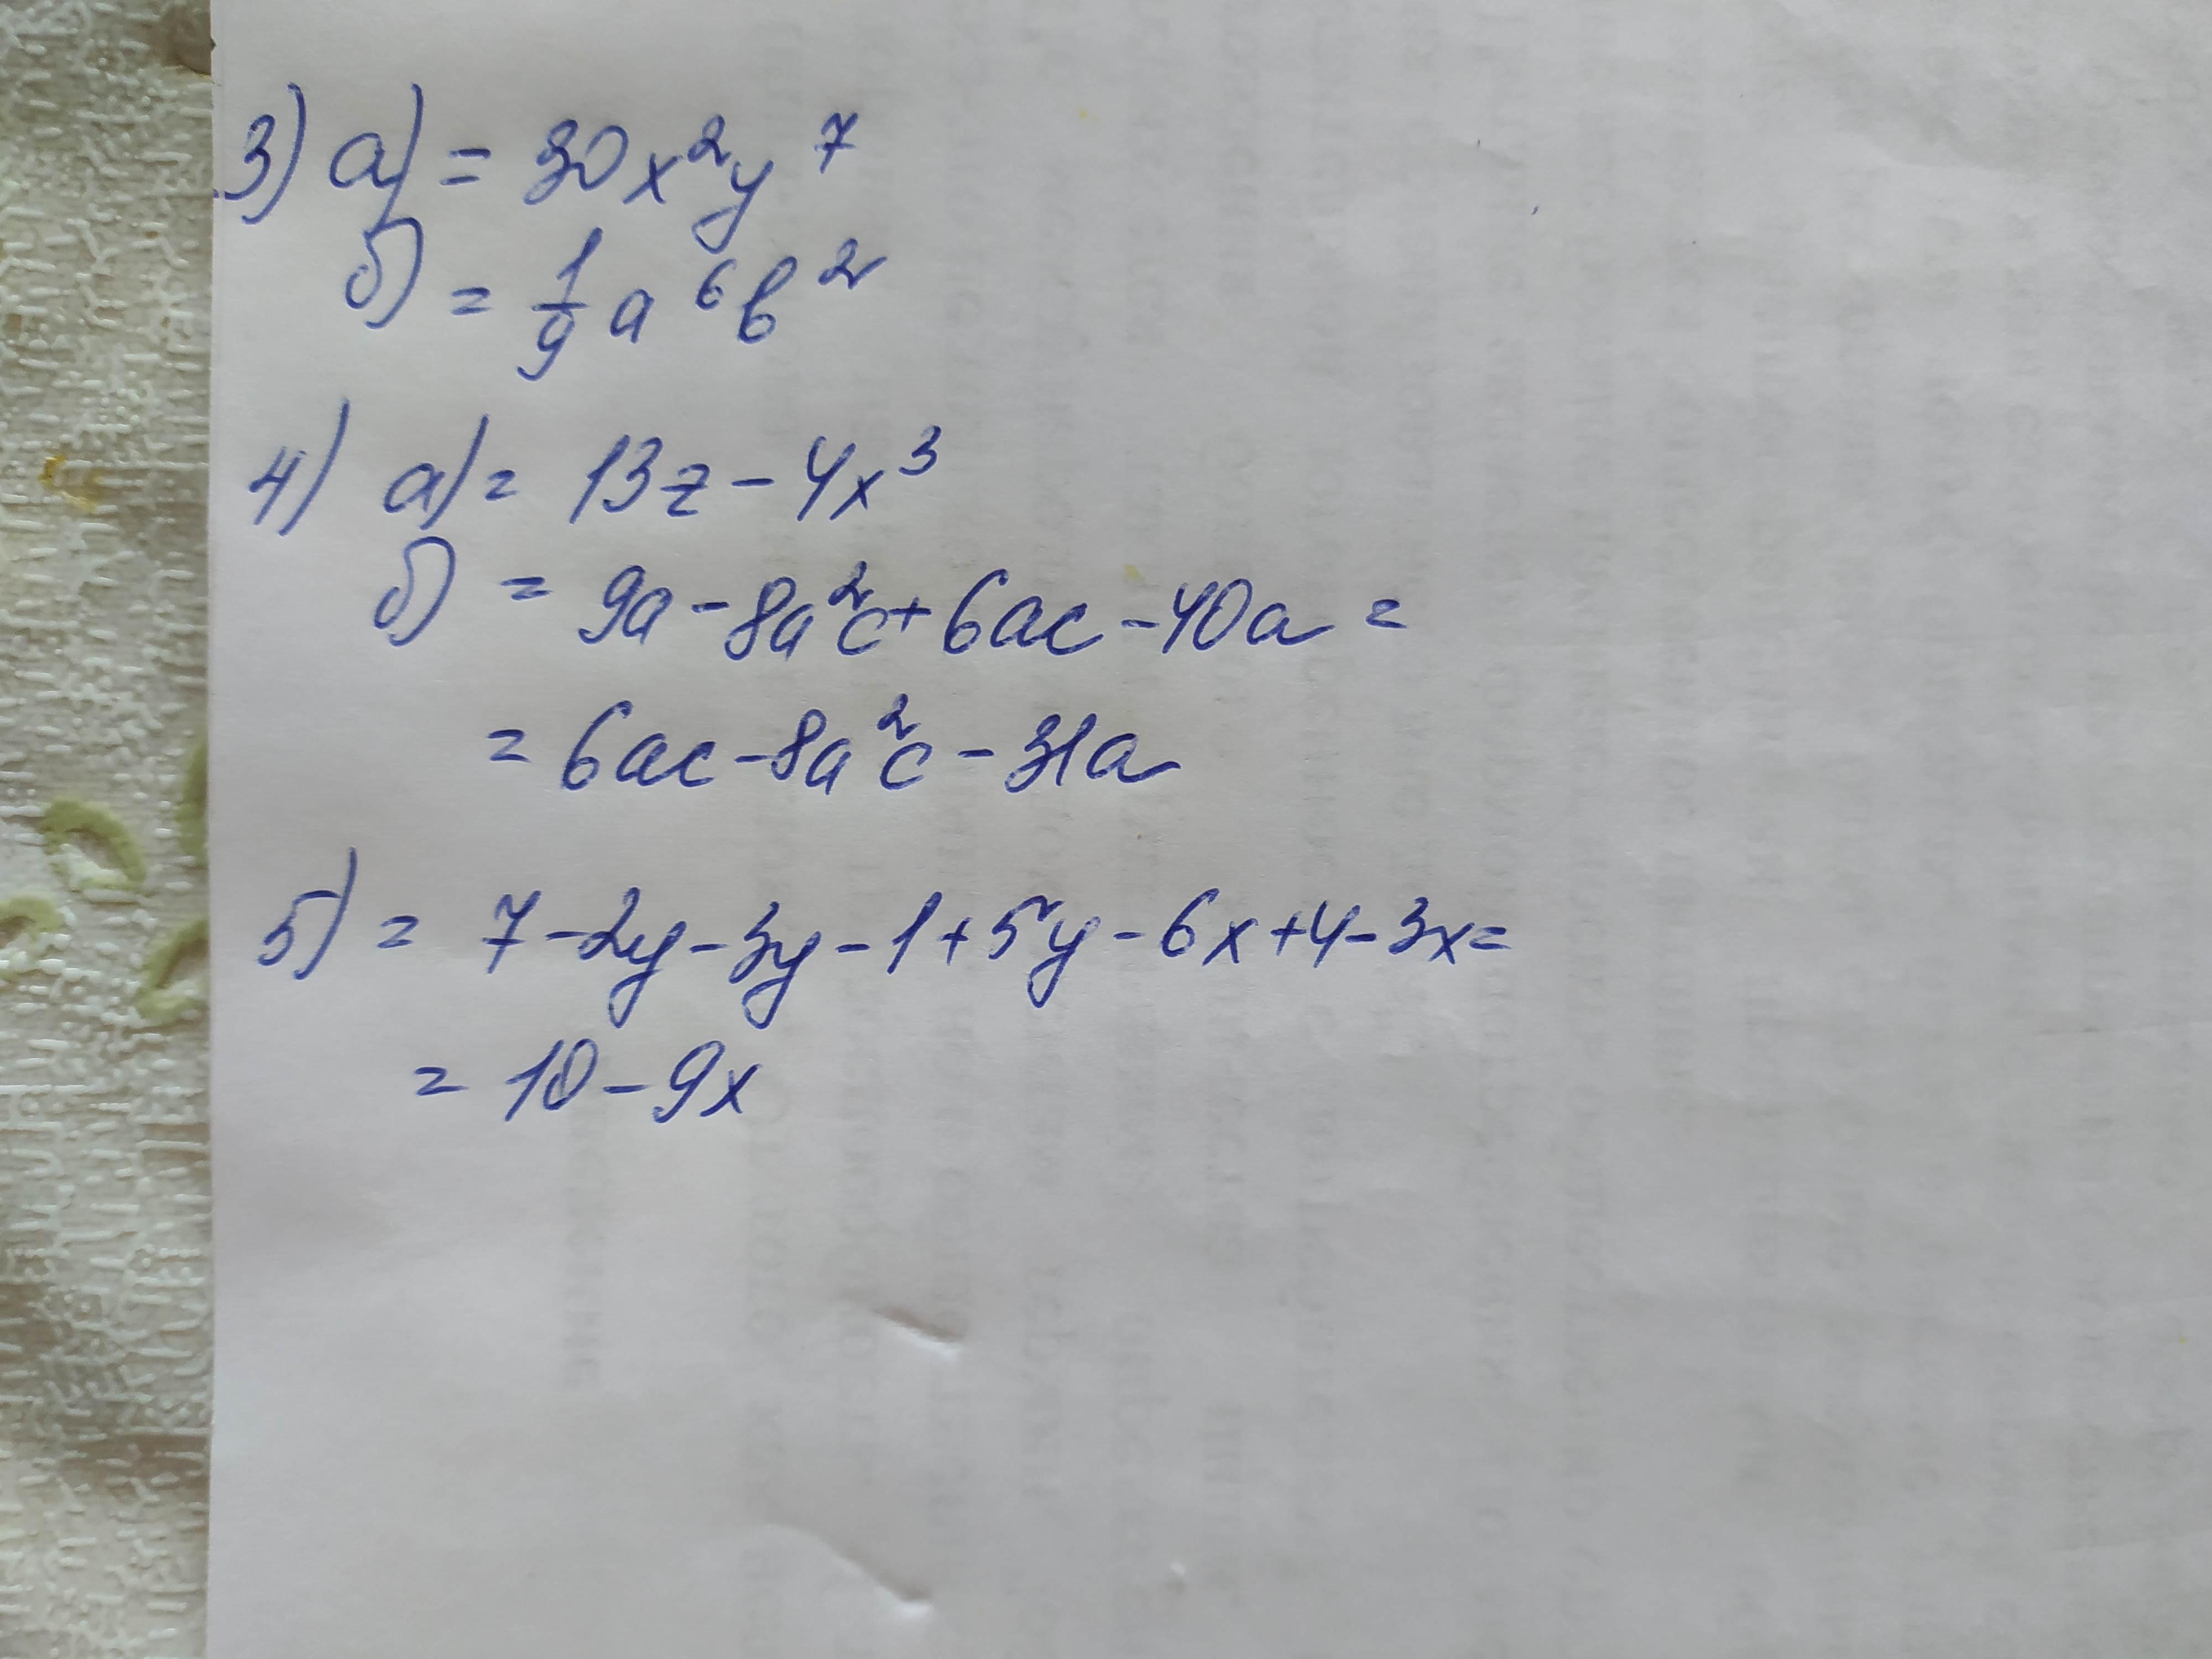 3) а) = 30x²y⁷
б) = 1/9 a⁶b²
4) а) = 13z - 4x³
б) = 9a - 8a²c + 6ac - 40a =
= 6ac - 8a²c - 31a
5) = 7 - 2y - 3y - 1 + 5y - 6x + 4 - 3x =
= 10 - 9x